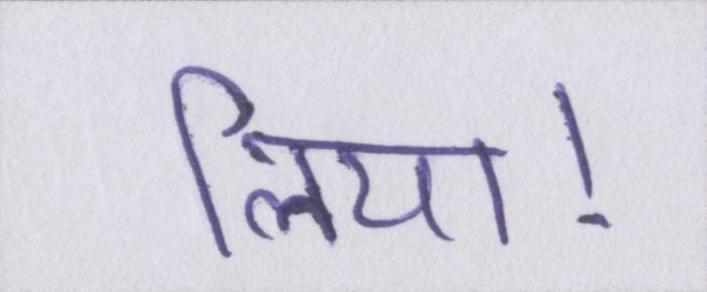 लिया!